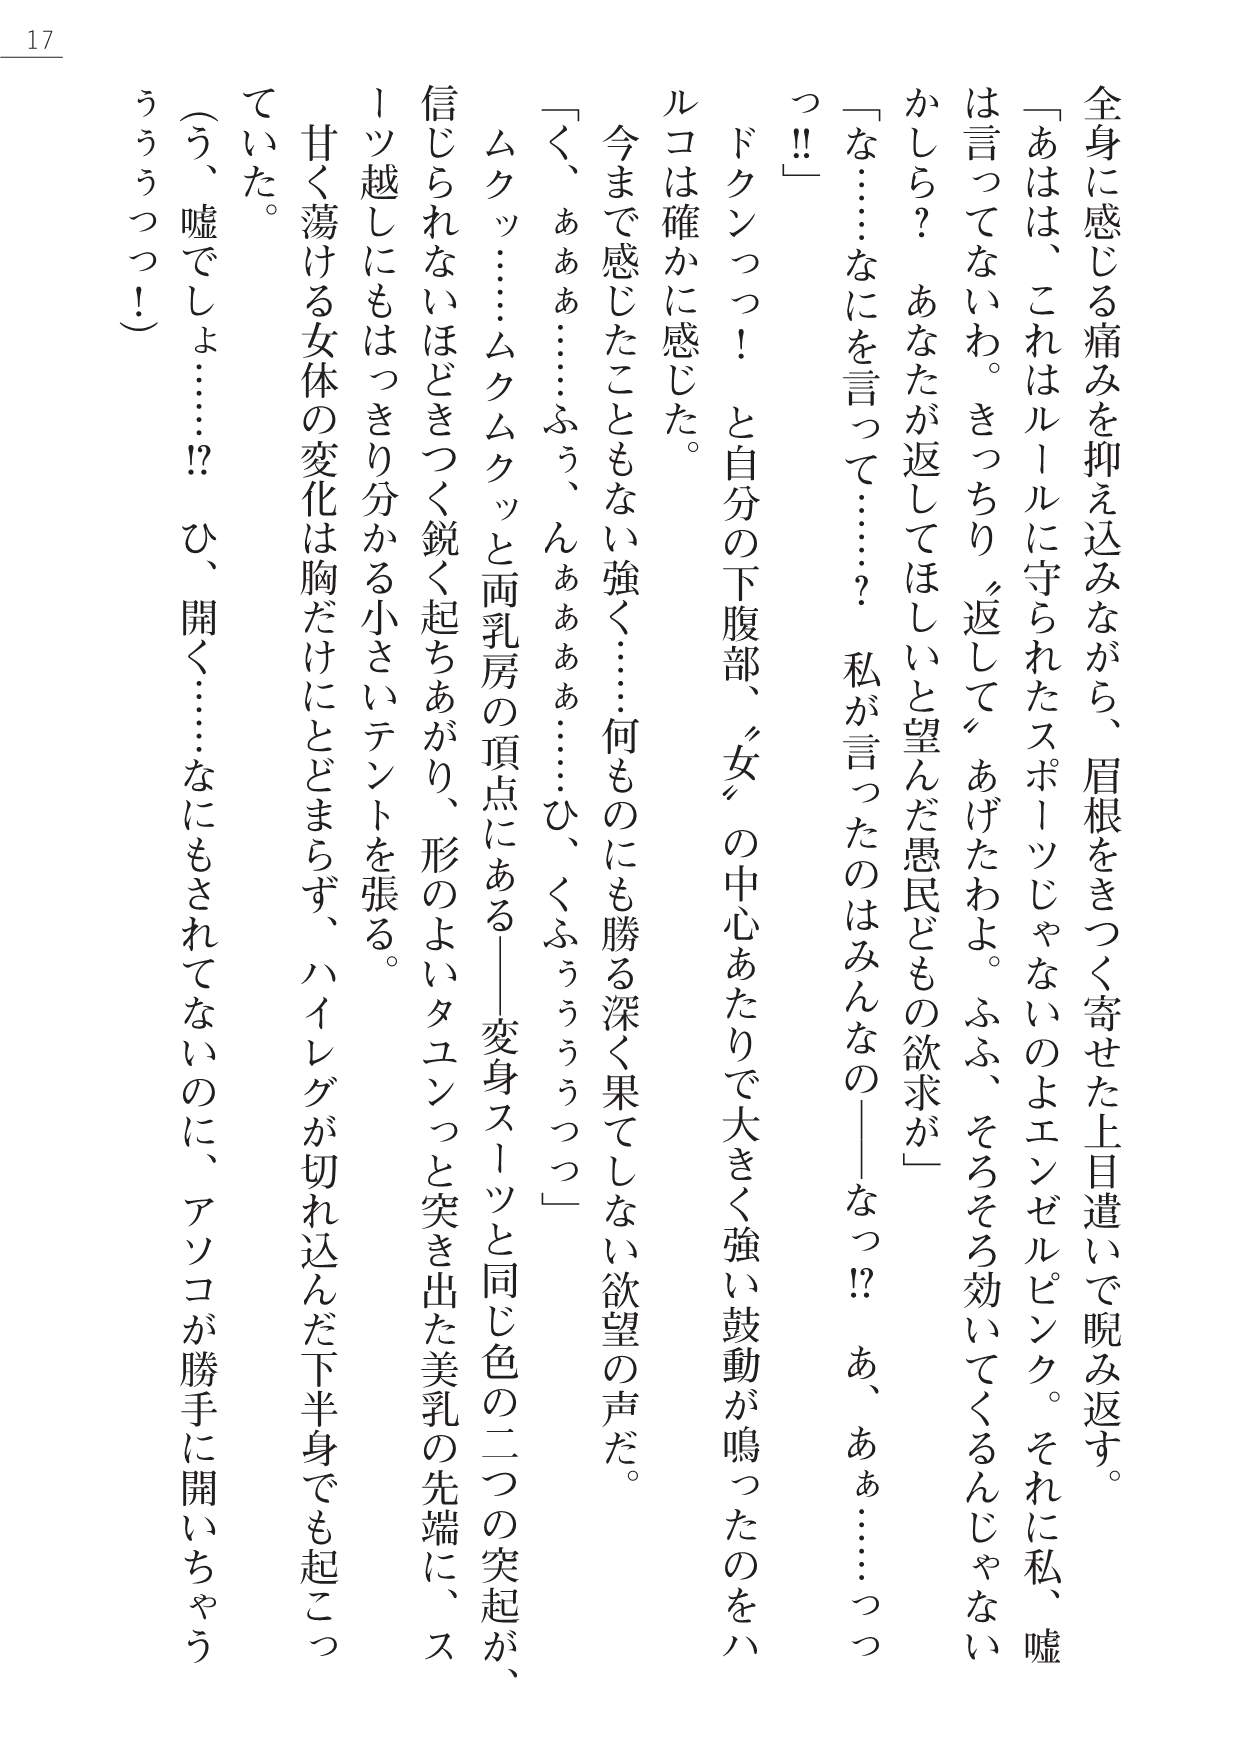 17
全身に感じる痛みを抑え込みながら、眉根をきつく寄せた上目遣いで睨み返す。
「あはは、これはルールに守られたスポーツじゃないのよエンゼルピンク。それに私、嘘
は言ってないわ。きっちり〝返して〟あげたわよ。ふふ、そろそろ効いてくるんじゃない
かしら？　あなたが返してほしいと望んだ愚民どもの欲求が」
「な……なにを言って……？　私が言ったのはみんなの――なっ!?　あ、あぁ……っっ
っ!!」
　ドクンっっ！　と自分の下腹部、〝女〟の中心あたりで大きく強い鼓動が鳴ったのをハ
ルコは確かに感じた。
　今まで感じたこともない強く……何ものにも勝る深く果てしない欲望の声だ。
「く、ぁぁぁ……ふぅ、んぁぁぁぁ……ひ、くふぅぅぅぅっっ」
　ムクッ……ムクムクッと両乳房の頂点にある――変身スーツと同じ色の二つの突起が、
信じられないほどきつく鋭く起ちあがり、形のよいタユンっと突き出た美乳の先端に、ス
ーツ越しにもはっきり分かる小さいテントを張る。
　甘く蕩ける女体の変化は胸だけにとどまらず、ハイレグが切れ込んだ下半身でも起こっ
ていた。
（う、嘘でしょ……!?　ひ、開く……なにもされてないのに、アソコが勝手に開いちゃう
ぅぅぅっっ！）